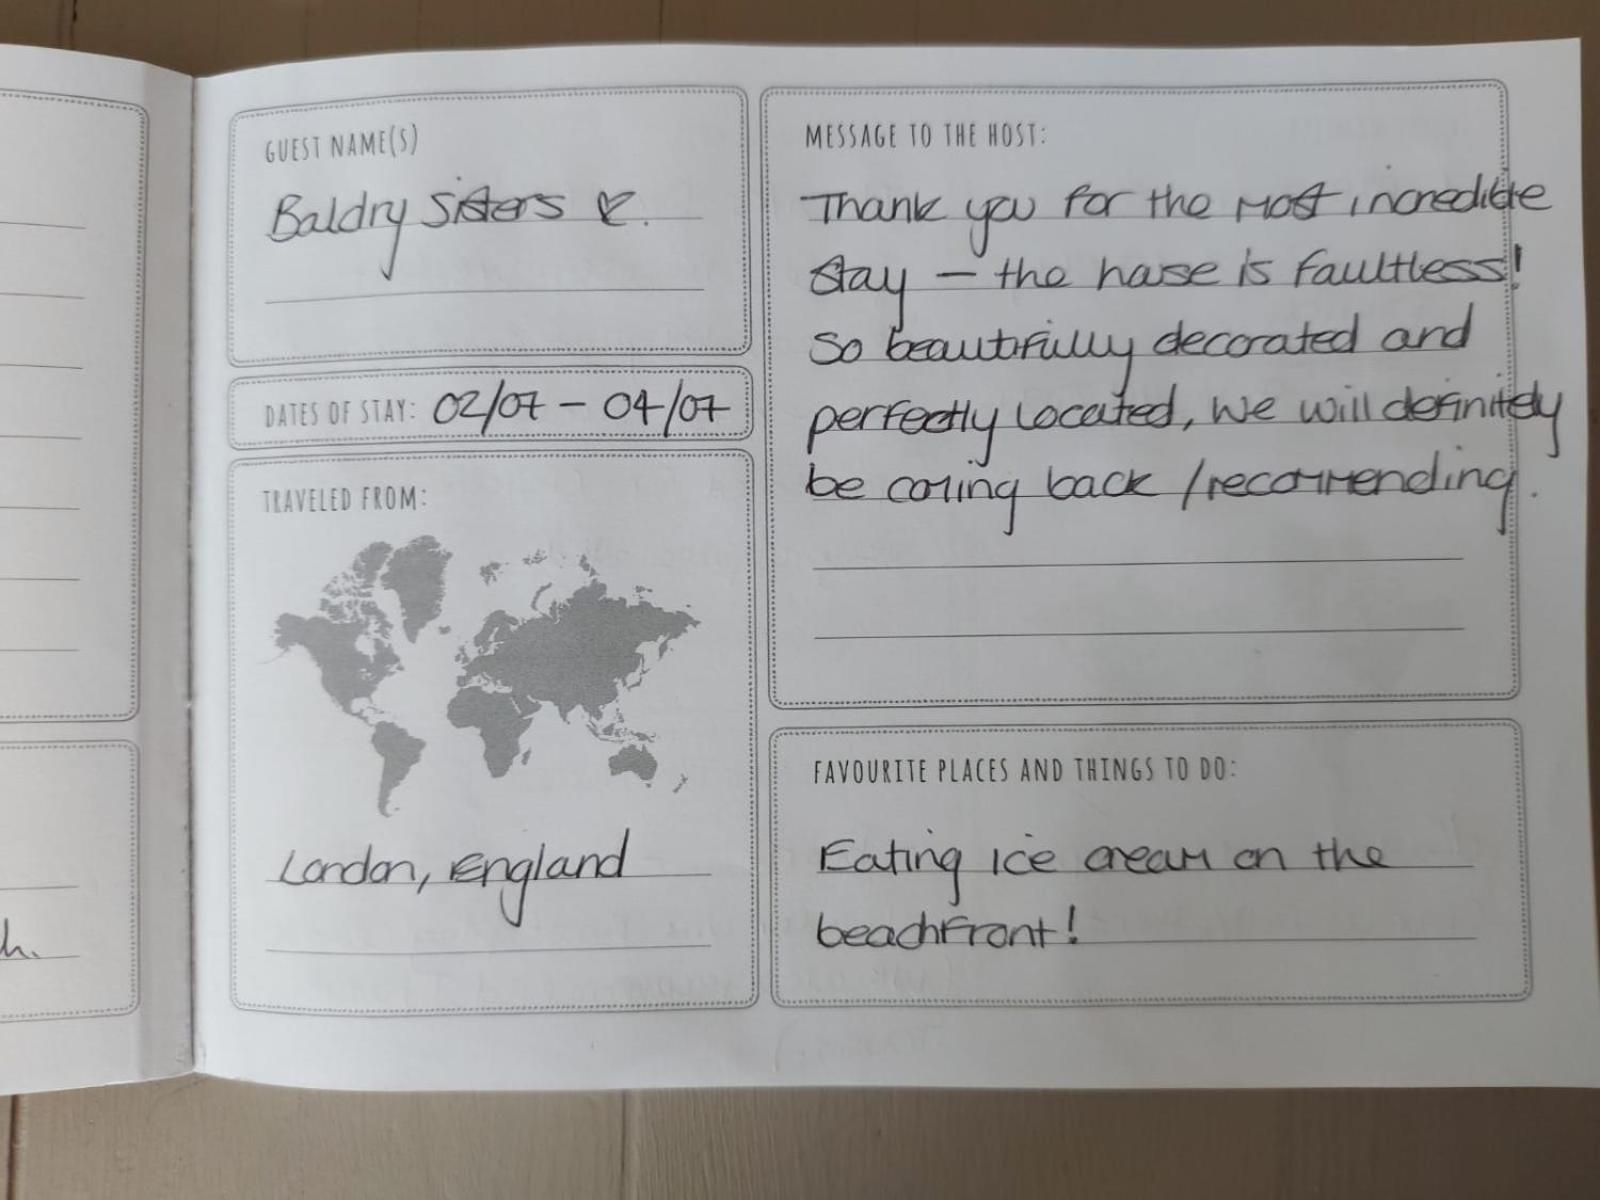 h.
GUEST NAME(S)
Baldry Sisters ♡.
DATES OF STAY: 02/07 - 04/07
TRAVELED FROM:
London, England
MESSAGE TO THE HOST:
Thank you for the most incredible
stay - the house is faultless!
So beautifully decorated and
perfectly located, we will definitely
be coming back / recommending.
FAVOURITE PLACES AND THINGS TO DO:
Eating ice cream on the
beachfront!